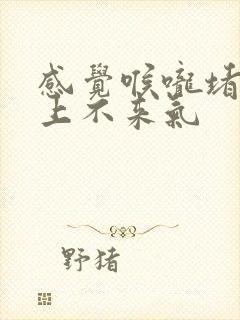 感覺喉嚨堵
上不来氣
野猪